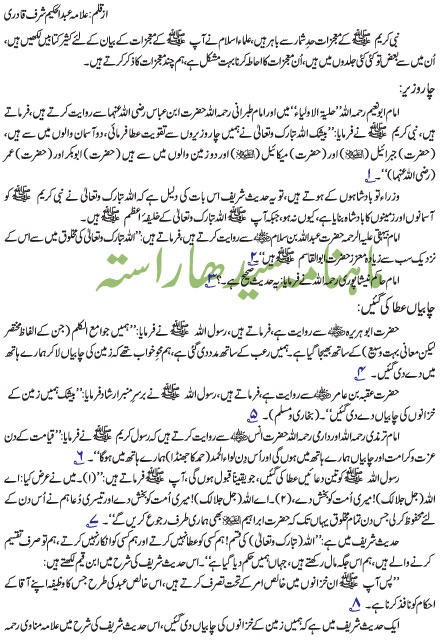 از قلم: علامہ عبدالحکیم شرف قادری
نبی کریم ﷺ کے معجزات حد شمار سے باہر ہیں، علماء اسلام نے آپ ﷺ کے معجزات کے بیان کے لئے کثیر کتابیں لکھیں ہیں،
ان میں سے بعض تو کئی کئی جلدوں میں ہیں، اُن معجزات کا احاطہ کرنا بہت مشکل ہے، ہم چند معجزات کا ذکر کرتے ہیں۔
چار وزیر:
امام ابو نعیم رحمہ اللہ ”حلیۃ الاولیاء“ میں اور امام طبرانی رحمہ اللہ حضرت ابن عباس رضی اللہ عنہما سے روایت کرتے ہیں، فرماتے
ہیں، نبی کریم ﷺ نے فرمایا: ”بیشک اللہ تبارک وتعالیٰ نے ہمیں چار وزیروں سے تقویت عطا فرمائی، دو آسمان والوں میں سے ہیں،
(حضرت) جبرائیل اور (حضرت) میکائیل اور دو زمین والوں میں سے ہیں (حضرت) ابوبکر اور (حضرت) عمر
(رضی اللہ عنہما)“۔ ۱
وزراء تو بادشاہوں کے ہوتے ہیں، تو یہ حدیث شریف اس بات کی دلیل ہے کہ اللہ تبارک وتعالیٰ نے نبی کریم ﷺ کو
آسمانوں اور زمینوں کا بادشاہ بنایا ہے، کیوں نہ ہو، جبکہ آپ ﷺ اللہ تبارک وتعالیٰ کے خلیفہ اعظم ﷺ ہیں۔
امام بیہقی علیہ الرحمہ حضرت عبداللہ بن سلام سے روایت کرتے ہیں، فرماتے ہیں: ”اللہ تبارک وتعالیٰ کی مخلوق میں سے اس کے
نزدیک سب سے زیادہ معزز حضرت ابوالقاسم ﷺ ہیں“ ۲
امام حاکم نیشاپوری رحمہ اللہ نے فرمایا: یہ حدیث صحیح ہے۔ ۳
ماہنامہ سیدھا راستہ
چابیاں عطا کی گئیں:
حضرت ابوہریرہ سے روایت ہے، فرماتے ہیں، رسول اللہ ﷺ نے فرمایا: ”ہمیں جوامع الکلم (جن کے الفاظ مختصر
لیکن معانی بہت وسیع) کے ساتھ بھیجا گیا ہے۔ ہمیں رعب کے ساتھ مدد دی گئی ہے، ہم محوِ خواب تھے کہ زمین کی چابیاں لا کر ہمارے ہاتھ
میں دے دی گئیں“۔ ۴
حضرت عقبہ بن عامر سے روایت ہے، فرماتے ہیں، رسول اللہ ﷺ نے برسرِ منبر ارشاد فرمایا: ”بیشک ہمیں زمین کے
خزانوں کی چابیاں دے دی گئیں“۔ (بخاری و مسلم)۔ ۵
امام ترمذی رحمہ اللہ اور دارمی رحمہ اللہ حضرت انس سے روایت کرتے ہیں کہ رسول کریم ﷺ نے فرمایا: ”قیامت کے دن
عزت و کرامت اور چابیاں ہمارے ہاتھ میں ہوں گی اور اُس دن لواء الحمد (حمد کا جھنڈا) ہمارے ہاتھ میں ہوگا“۔ ۶
رسول اللہ ﷺ کو تین دعائیں عطا کی گئیں، جو یقیناً قبول ہوں گی، آپ ﷺ فرماتے ہیں: ”(۱)۔ میں نے عرض کیا: اے
اللہ (جل جلالک)! میری اُمت کو بخش دے، (۲)۔ اے اللہ (جل جلالک)! میری اُمت کو بخش دے اور تیسری دُعا ہم نے اُس دن کے
لئے محفوظ کر لی جس دن تمام مخلوق یہاں تک کہ حضرت ابراہیم بھی ہماری طرف رجوع کریں گے“۔ ۷
حدیث میں ہے: ”اللہ (تبارک وتعالیٰ) کی قسم! ہم کسی کو عطا نہیں کرتے اور ہم کسی کو انکار نہیں کرتے، ہم تو صرف تقسیم
کرنے والے ہیں، ہم اس جگہ مال رکھتے ہیں، جہاں ہمیں حکم دیا گیا ہے“۔ اس حدیث شریف کی شرح میں ابن قیم لکھتے ہیں:
”پس آپ ﷺ ان خزانوں میں خالص امر کے تحت تصرف کرتے ہیں، اس خالص عبد کی طرح جس کا وظیفہ اپنے آقا کے
احکام کو نافذ کرنا ہے۔ ۸
ایک حدیث شریف میں ہے کہ ہمیں زمین کے خزانوں کی چابیاں دی گئیں، اس حدیث شریف کی شرح میں علامہ مناوی رحمہ